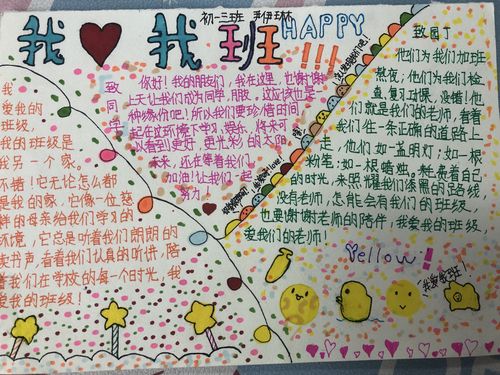 初一三班 尹伊琳
我❤我班 HAPPY !!!
我
爱我的
班级,
我的班级是
我另一个家。
不错!它无论怎么都
是我的家,它像一位慈
祥的母亲给我们学习的
环境,它总是听着我们朗朗的
读书声,看着我们认真的听讲,陪
着我们在学校的每一个时光,我
爱我的班级!
致同学
你好!我的朋友们,我在这里,也谢谢
上天让我们成为同学,朋友,这应该也是一
种缘份吧!所以我们要珍惜时间
起在这环境下学习,娱乐,将来可
以看到更好,更光彩的太阳
未来,还在等着我们。
加油!让我们一起
努力!
致园丁
他们为我们加班
熬夜,他们为我们检
查,复习功课,没错!他
们就是我们的老师,带着
我们在一条正确的道路上
走,他们如一盏明灯;如一根
粉笔;如一根蜡烛。耗费着自己
的时光,来照耀我们漆黑的路线
没有老师,怎能会有我们的班级,
也要谢谢老师的陪伴,我爱我的班级,
爱我们的老师!
Yellow!
我爱我班!